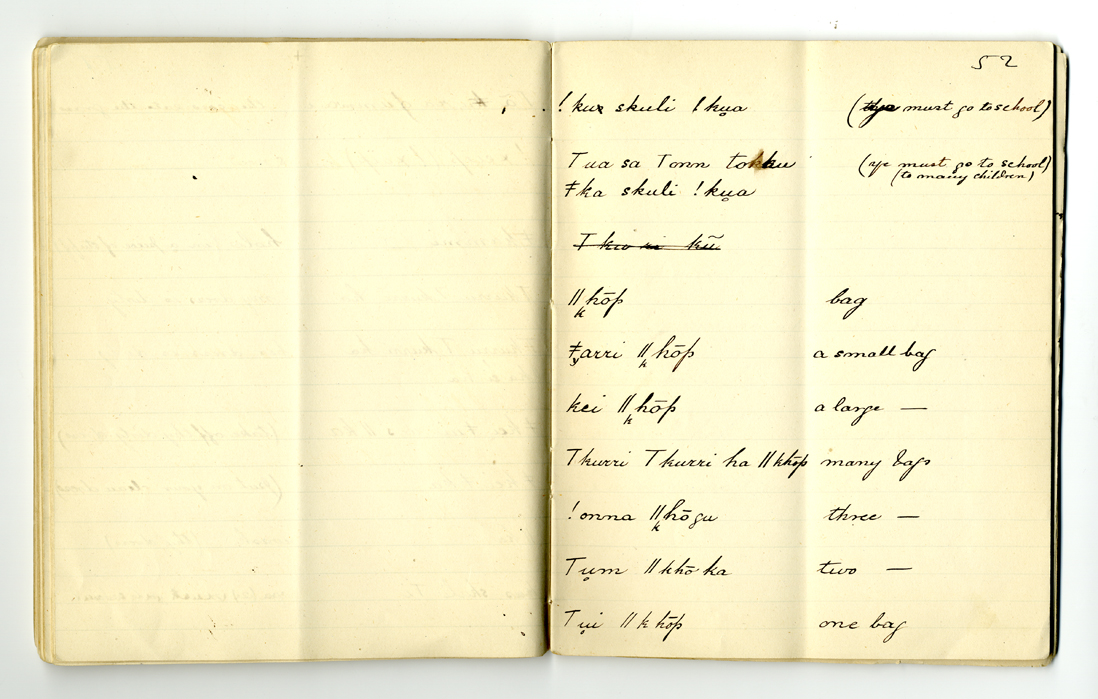 52
! kua skuli ! ku̥a (~~thye~~ must go to school)
Tua sa Tonn tokku (ye must go to school)
(to many children)
ǂka skuli ! ku̥a
~~T kw ri kū~~
ǁkhōp bag
ǂyarri ǁkhōp a small bag
kei ǁkhōp a large —
Tkurri Tkurri ha ǁkhōp many bags
! onna ǁkhōgu three —
Tu̥m ǁkhō ka two —
Tu̥i ǁkhōp one bag